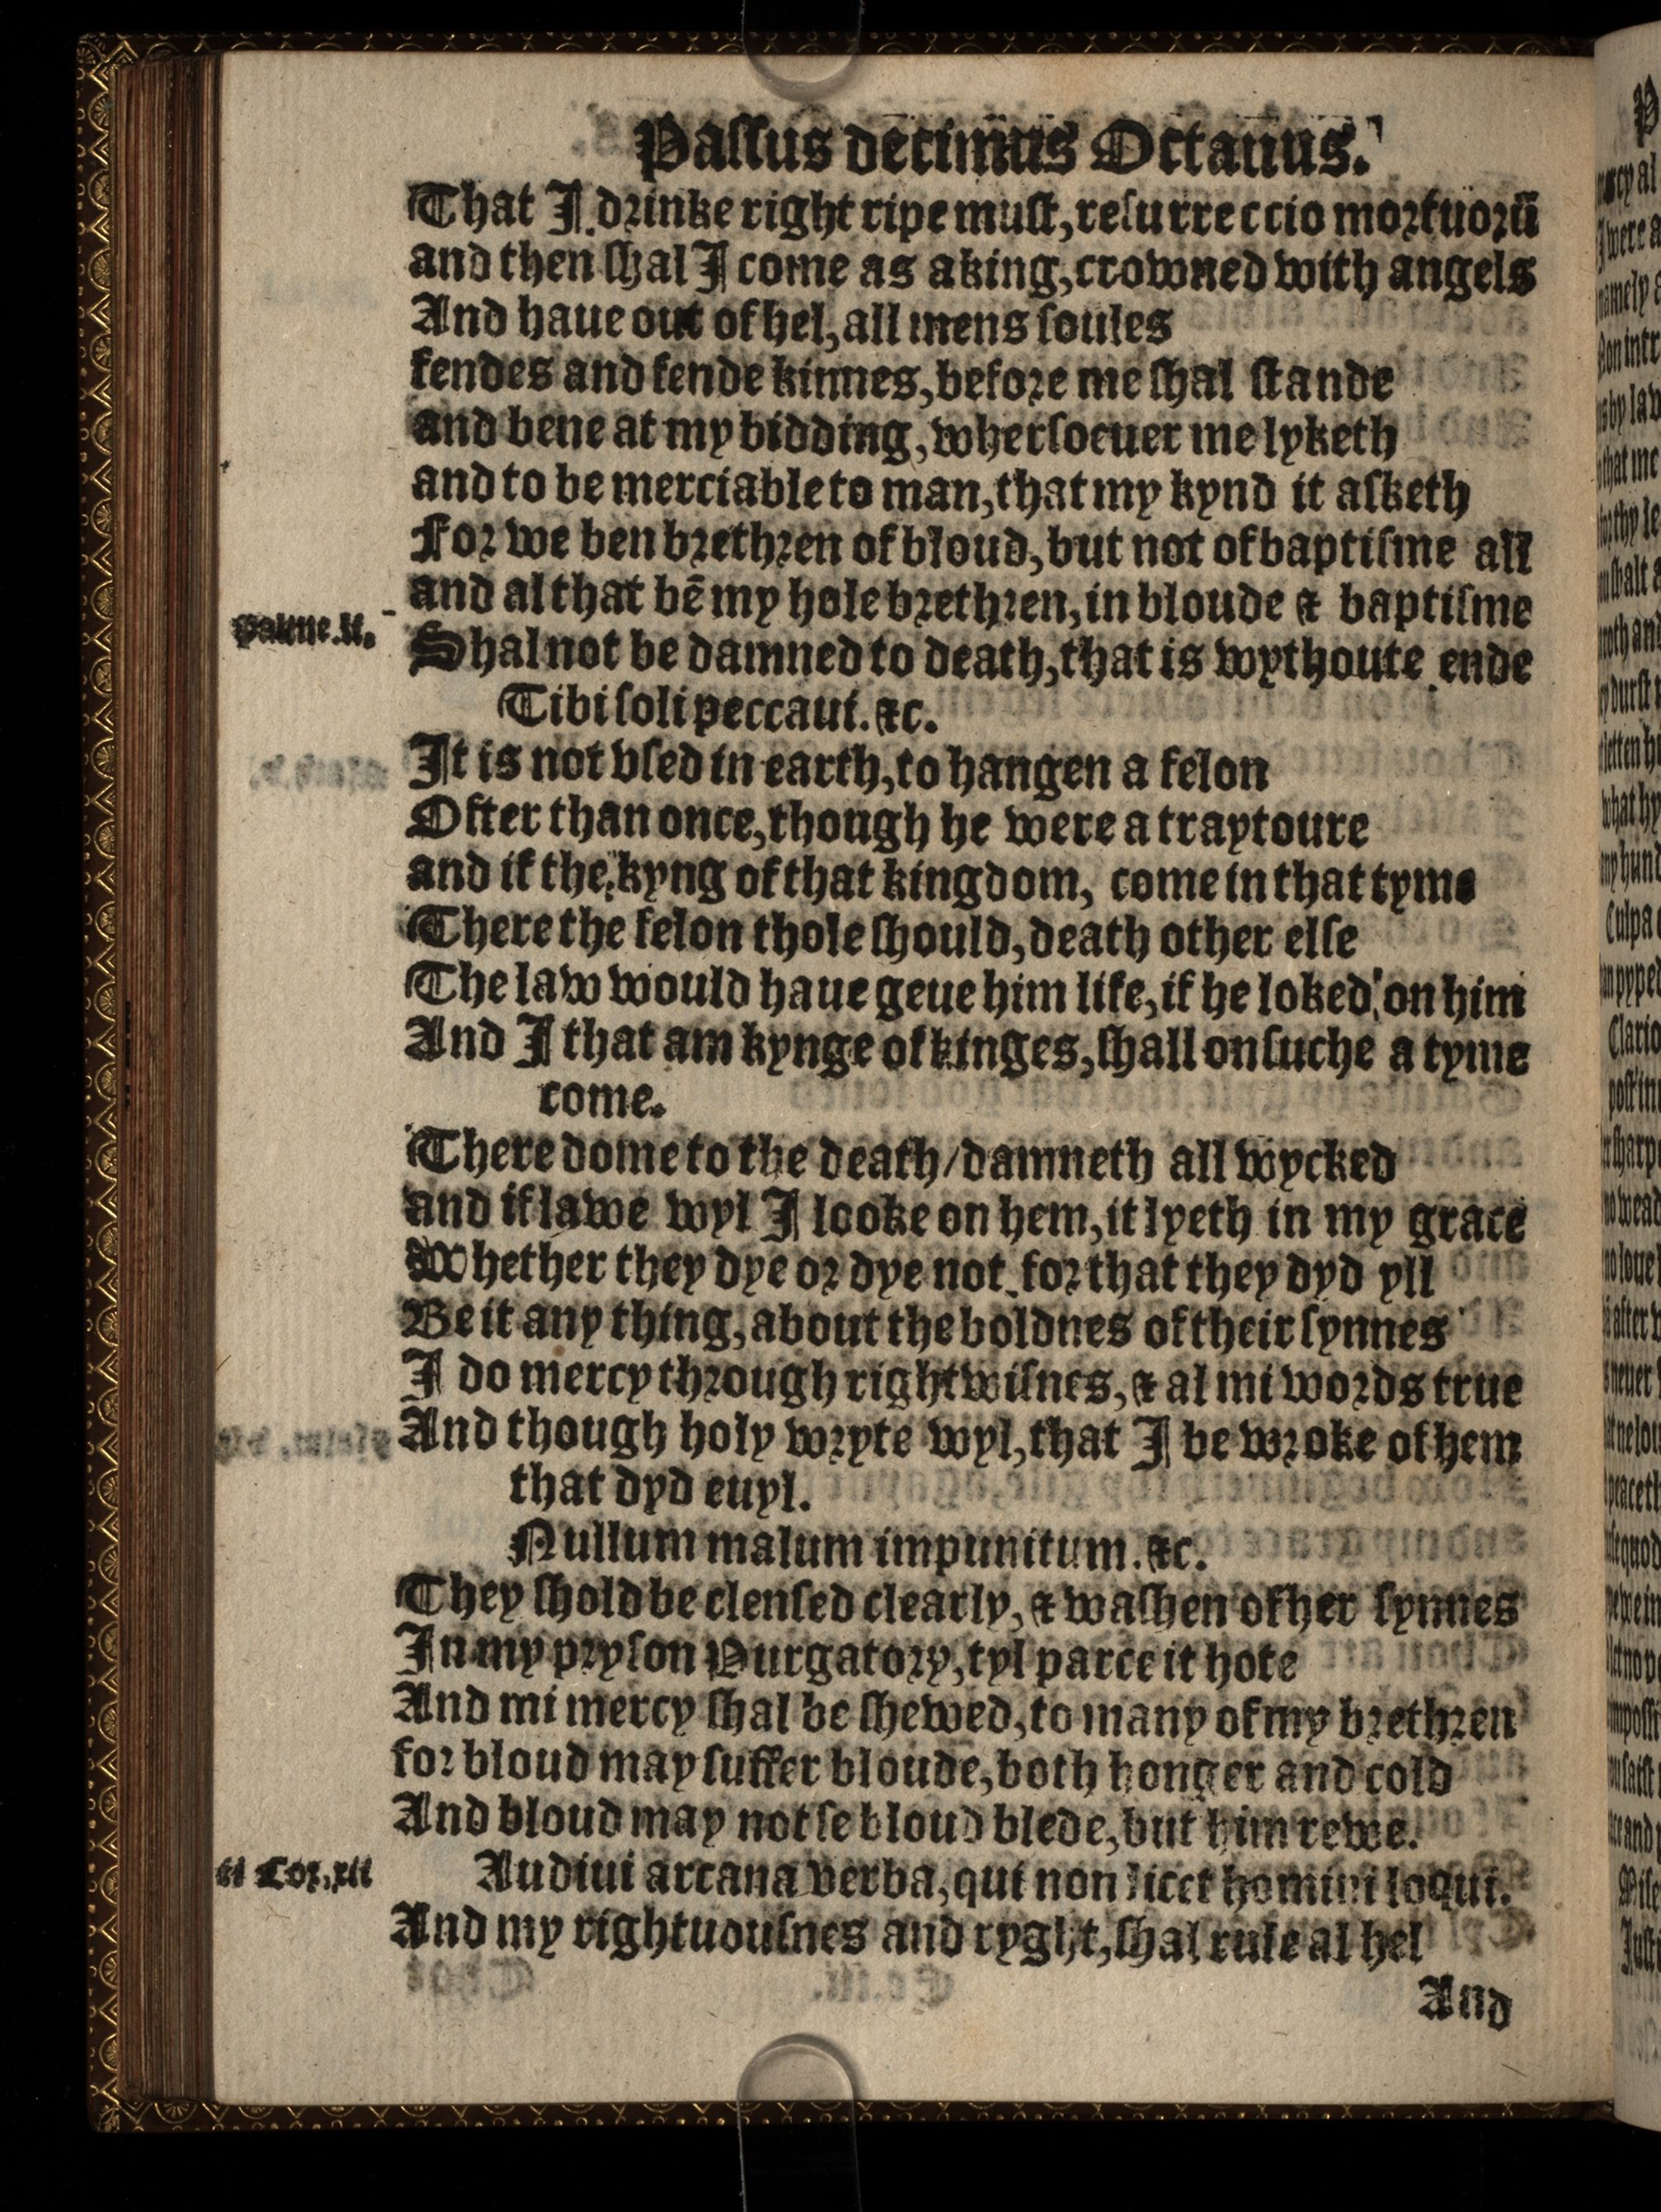 Passus decimus Octauus.
That I drinke right ripe must, resurreccio mortuorū
and then shal I come as a king, crowned with angels
And haue out of hel, all mens soules
fendes and fende kinnes, before me shal stande
and bene at my bidding, whersoeuer me lyketh
and to be merciable to man, that my kynd it asketh
For we ben brethren of bloud, but not of baptisme all
and al that bē my hole brethren, in bloude & baptisme
Shal not be damned to death, that is wythoute ende
Tibi soli peccaui. &c.
It is not vsed in earth, to hangen a felon
Ofter than once, though he were a traytoure
and if the kyng of that kingdom, come in that tyme
There the felon thole should, death other else
The law would haue geue him life, if he loked on him
And I that am kynge of kinges, shall on suche a tyme
come.
There dome to the death/damneth all wycked
and if lawe wyl I looke on hem, it lyeth in my grace
Whether they dye or dye not, for that they dyd yll
Be it any thing, about the boldnes of their synnes
I do mercy through rightwisnes, & al mi words true
And though holy wryte wyl, that I be wroke of hem
that dyd euyl.
Nullum malum impunitum. &c.
They shold be clensed clearly, & washen of her synnes
In my pryson Purgatory, tyl parce it hote
And mi mercy shal be shewed, to many of my brethren
for bloud may suffer bloude, both honger and cold
And bloud may not se bloud blede, but him rewe.
ii Cor. xii
Audiui arcana verba, qui non licet homini loqui.
And my rightuousnes and ryght, shal rule al hel
And